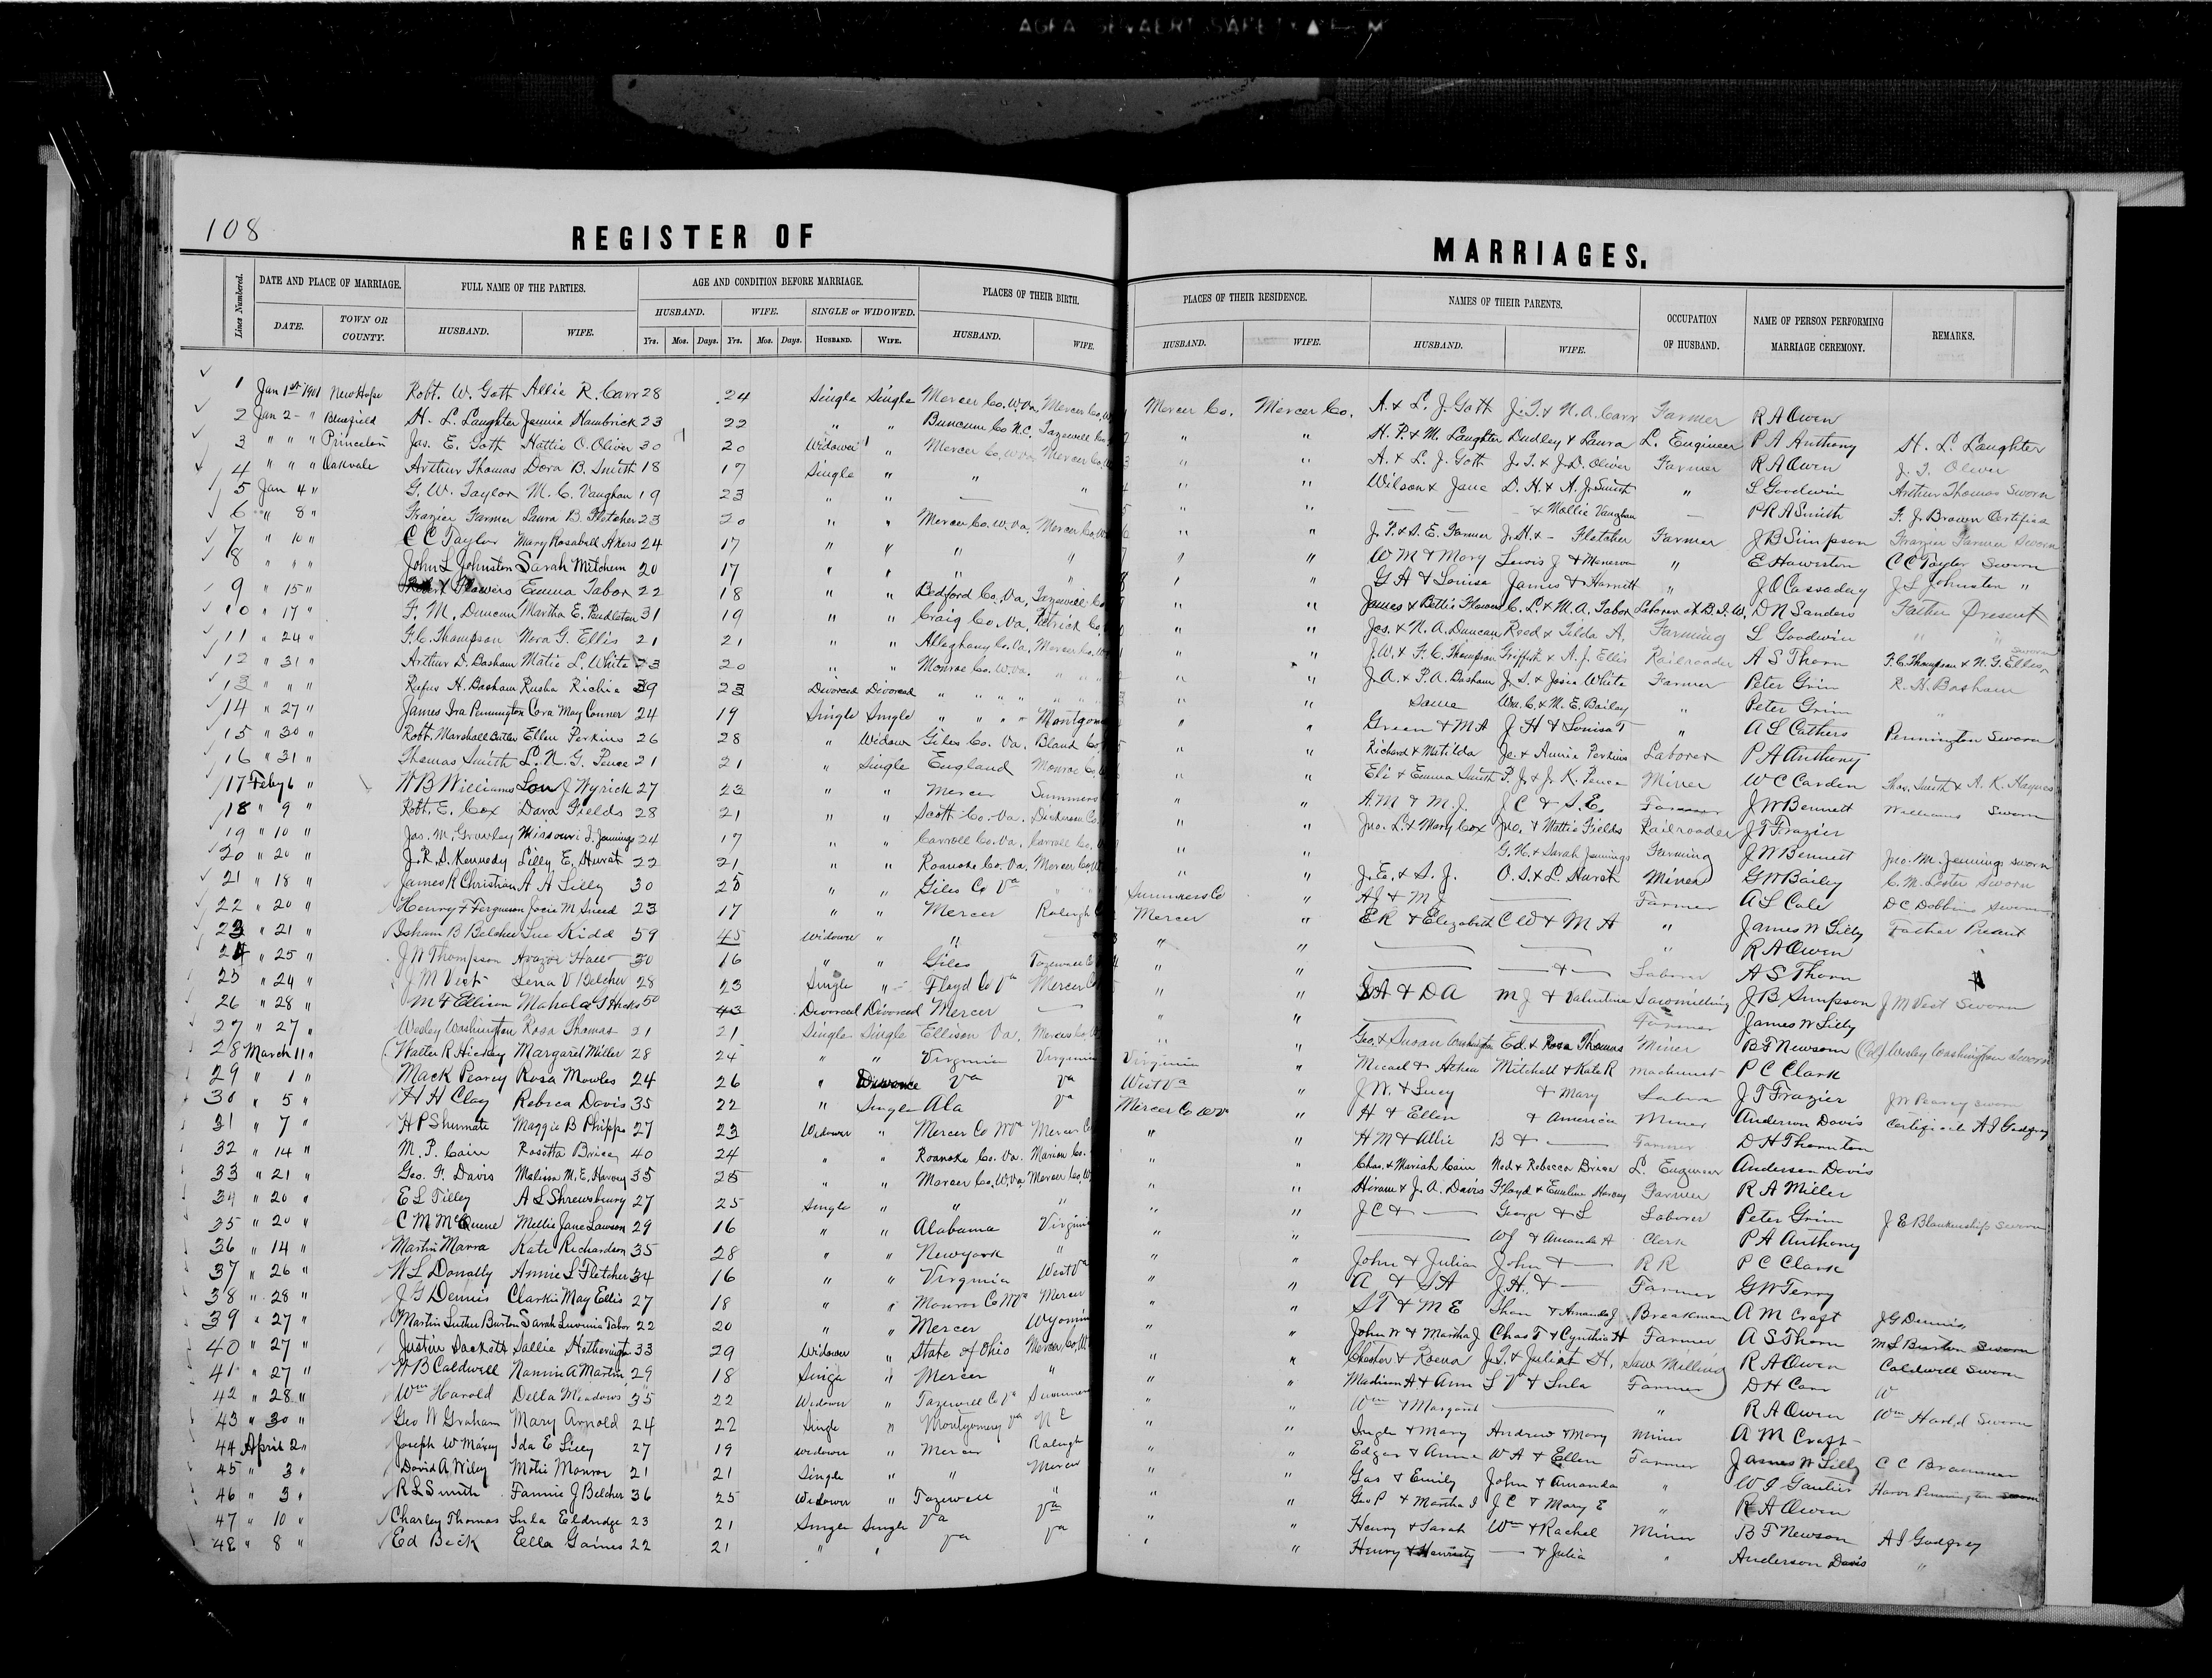 108
REGISTER OF MARRIAGES.
Lines Numbered. DATE AND PLACE OF MARRIAGE. FULL NAME OF THE PARTIES. AGE AND CONDITION BEFORE MARRIAGE. PLACES OF THEIR BIRTH. PLACES OF THEIR RESIDENCE. NAMES OF THEIR PARENTS. OCCUPATION OF HUSBAND. NAME OF PERSON PERFORMING MARRIAGE CEREMONY. REMARKS.
DATE. TOWN OR COUNTY. HUSBAND. WIFE. HUSBAND. WIFE. SINGLE or WIDOWED. HUSBAND. WIFE. HUSBAND. WIFE. HUSBAND. WIFE.
Yrs. Mos. Days. Yrs. Mos. Days. HUSBAND. WIFE.
1 Jan 1st 1901 New Hope Robt. W. Goth Allie R. Carr 28 24 Single Single Mercer Co. W.Va. Mercer Co. Mercer Co. Mercer Co. A. & L. J. Goth J. T. & N. A. Carr Farmer R A Owen
2 Jan 2 - " Bluefield H. L. Laughter Jennie Hambrick 23 22 " " Buncum Co N.C. Tazewell " " H. P. & M. Laughter Dudley & Laura L. Engineer P A Anthony H. L. Laughter
3 " " " Princeton Jas. E. Goth Hattie O. Oliver 30 20 Widower " Mercer Co. W.Va. Mercer Co. " " A. & L. J. Goth J. T. & J. D. Oliver Farmer R A Owen J. T. Oliver
4 " " " Oakvale Arthur Thomas Dora B. Smith 18 17 Single " " " " " Wilson & Jane D. H. & A. J. Smith " L Goodwin Arthur Thomas Sworn
5 Jan 4 " G. W. Taylor M. C. Vaughan 19 23 " " — — " " — — & Mollie Vaughan — R A Smith F. J. Brown Certified
6 " 8 " Frazier Farmer Laura B. Fletcher 23 20 " " Mercer Co. W.Va. Mercer Co. " " J. P. & S. E. Farmer J. H. & - Fletcher Farmer J B Simpson Frazier Farmer Sworn
7 " 10 " C C Taylor Mary Rosabell Akers 24 17 " " " " " " W M & Mary Lewis J & Minerva " E Hawiston C C Taylor Sworn
8 " " " John L Johnston Sarah Mitchem 20 17 " " " " " " G H & Louisa James & Harriett " J O Cassaday J L Johnston "
9 " 15 " Flowers Emma Tabor 22 18 " " Bedford Co. Va. Tazewell " " James & Bettie Flowers C. L. & M. A. Tabor Laborer at B. I. W. D N Sanders Father Present
10 " 17 " F. M. Duncan Martha E. Pendleton 31 19 " " Craig Co. Va. Patrick Co. " " Jas. & N. A. Duncan Reed & Tilda A. Farming L Goodwin " "
11 " 24 " F. C. Thompson Nora G. Ellis 21 21 " " Alleghany Co. Va. Mercer Co. " " J. W. & F. C. Thompson Griffith & A. J. Ellis Railroader A S Thorn F. C. Thompson & N. G. Ellis Sworn
12 " 31 " Arthur D. Basham Matie L. White 23 20 " " Monroe Co. W.Va. " " " " J. A. & P. A. Basham J. S. & Josie White Farmer Peter Grim R. H. Basham
13 " " " Rufus H. Basham Rusha Richie 39 23 Divorced Divorced " " " " " " Same Wm. C. & M. E. Bailey " Peter Grim "
14 " 27 " James Ira Pennington Cora May Conner 24 19 Single Single " " " " Montgom " " Green & M A J H & Louisa T " A L Cathers Pennington Sworn
15 " 30 " Robt. Marshall Butler Ellen Perkins 26 28 " Widow Giles Co. Va. Bland Co " " Richard & Matilda Je. & Annie Perkins Laborer P H Anthony
16 " 31 " Thomas Smith L. N. G. Pence 21 21 " Single England Monroe Co. " " Eli & Emma Smith P. J. & J. K. Pence Miner W C Carden Thos. Smith & A. K. Haynes
17 Feby 6 " W B Williams Lou J Wyrick 27 23 " " Mercer Summers " " A. M & M. J. J C & S. E. Farmer J W Bennett Williams Sworn
18 " 9 " Robt. E. Cox Dara Fields 28 21 " " Scott Co. Va. Dickenson Co. " " Jno. L. & Mary Cox Jno. & Mattie Fields Railroader J T Frazier
19 " 10 " Jas. M. Missouri J. Jennings 24 17 " " Carroll Co. Va. Carroll Co. " " G. H. & Sarah Jennings Farming J W Bennett Jno. M. Jennings Sworn
20 " 20 " J. R. S. Kennedy Lilly E. Hurst 22 21 " " Roanoke Co. Va. Mercer Co. " " J. E. & S. J. O. S. & L. Hursh Miner G W Bailey C. M. Lester Sworn
21 " 18 " James R Christian A A Lilly 30 25 " " Giles Co Va " " Summers Co " A J & M J — Farmer A L Cole D C Dobbins Sworn
22 " 20 " Henry F Ferguson Josie M Sneed 23 17 " " Mercer Raleigh Mercer " E R & Elizabeth C W & M A " James W Lilly Father Present
23 " 21 " Isham B Belcher Sue Kidd 59 45 Widower " " — " " — — " R A Owen
24 " 25 " J W Thompson Avazor Hall 30 16 " " Giles Tazewell " " — — & — Laborer A S Thorn
25 " 24 " J M Vest Lena V Belcher 28 23 Single " Floyd Co Va Mercer " " & D A M J & Valentine Sawmilling J B Simpson J M Vest Sworn
26 " 28 " M F Ellison Mahala G Hicks 50 43 Divorced Divorced Mercer — " " Farmer James W Lilly
27 " 27 " Wesley Washington Rosa Thomas 21 21 Single Single Ellison Va. Mercer Co. " " Geo. & Susan Washington Ed & Rosa Thomas Miner B F Newsom (Col) Wesley Washington Sworn
28 March 11 " Walter R Hickey Margaret Miller 28 24 " " Virginia Virginia Virginia " Micael & Athea Mitchell & Kate R Machinist P C Clark
29 " 1 " Mack Pearcy Rosa Mowles 24 26 " Divorce Va Va West Va " J W. & Lucy & Mary Labor J T Frazier J W Pearcy Sworn
30 " 5 " H H Clay Rebeca Davis 35 22 " Single Ala Va Mercer Co W V " H & Ellen & America Miner Anderson Davis Certificate A I Godfrey
31 " 7 " H P Shumate Maggie B Phipps 27 23 Widower " Mercer Co W Va Mercer Co " " H M & Allie B & — Farmer D H Thornton
32 " 14 " M. P. Cain Rosetta Brice 40 24 " " Roanoke Co. Va. Marion Co. " " Chas. & Mariah Cain Ned & Rebecca Brice L. Engineer Anderson Davis
33 " 21 " Geo. F. Davis Malissa M. E. Harvey 35 25 " " Mercer Co. W.Va. Mercer Co. " " Hiram & J. A. Davis Floyd & Emeline Harvey Farmer R A Miller
34 " 20 " E L Tilley A L Shrewsbury 27 25 Single " " " " " J C & — George & L Laborer Peter Grim J E Blankenship Sworn
35 " 20 " C M McQuene Mellie Jane Lawson 29 16 " " Alabama Virginia " " — W J & Amanda A Clerk P H Anthony
36 " 14 " Martin Marra Kate Richardson 35 28 " " Newyork " " " John & Julian John & — R R P C Clark
37 " 26 " W L Donally Annie L Fletcher 34 16 " " Virginia West Va " " A & S A J. H. & — Farmer G W Terry
38 " 28 " J G Dennis Clarkie May Ellis 27 18 " " Monroe Co W Va Mercer " " S T & M E Thom & Amanda J Breakman A M Craft J G Dennis
39 " 27 " Martin Luther Burton Sarah Luvenia Tabor 22 20 " " Mercer Wyomin " " John W & Martha J Chas T & Cynthia H Farmer A S Thorn M L Burton Sworn
40 " 27 " Justin Sackett Sallie Hetherington 33 29 Widower " State of Ohio Mercer Co. " " Chester & Roena J. T. & Juliat H. Saw Milling R A Owen Caldwell Sworn
41 " 27 " W B Caldwell Nannie A Martin 29 18 Singe " Mercer " " " Madison A & Ann S V & Lula Farmer D H Carr W
42 " 28 " Wm Harold Della Meadows 35 22 Widower " Tazewell Co Va Summers " " Wm & Margaret — " R A Owen Wm Harold Sworn
43 " 30 " Geo W Graham Mary Arnold 24 22 Single " Montgomery Va N C " " & Mary Andrew & Mary Miner A M Craft
44 April 2 " Joseph W Maxey Ida E Lilly 27 19 Widower " Mercer Raleigh " " Edgar & Anna W A & Ellen Farmer James W Lilly C C Brammer
45 " 3 " David A Wiley Motie Monroe 21 21 Single " " Mercer " " Gas & Emily John & Amanda " W I Gautier Pennington Sworn
46 " 3 " R L Smith Fannie J Belcher 36 25 Widower " Tazewell " " " Geo P & Martha J J C & Mary E " R A Owen
47 " 10 " Charley Thomas Lula Eldridge 23 21 Single Single Va Va " " Henry & Sarah Wm & Rachel Miner B F Newson A I Godfrey
48 " 8 " Ed Beck Ella Gaines 22 21 " " Va Va " " Henry & — & Julia " Anderson Davis "